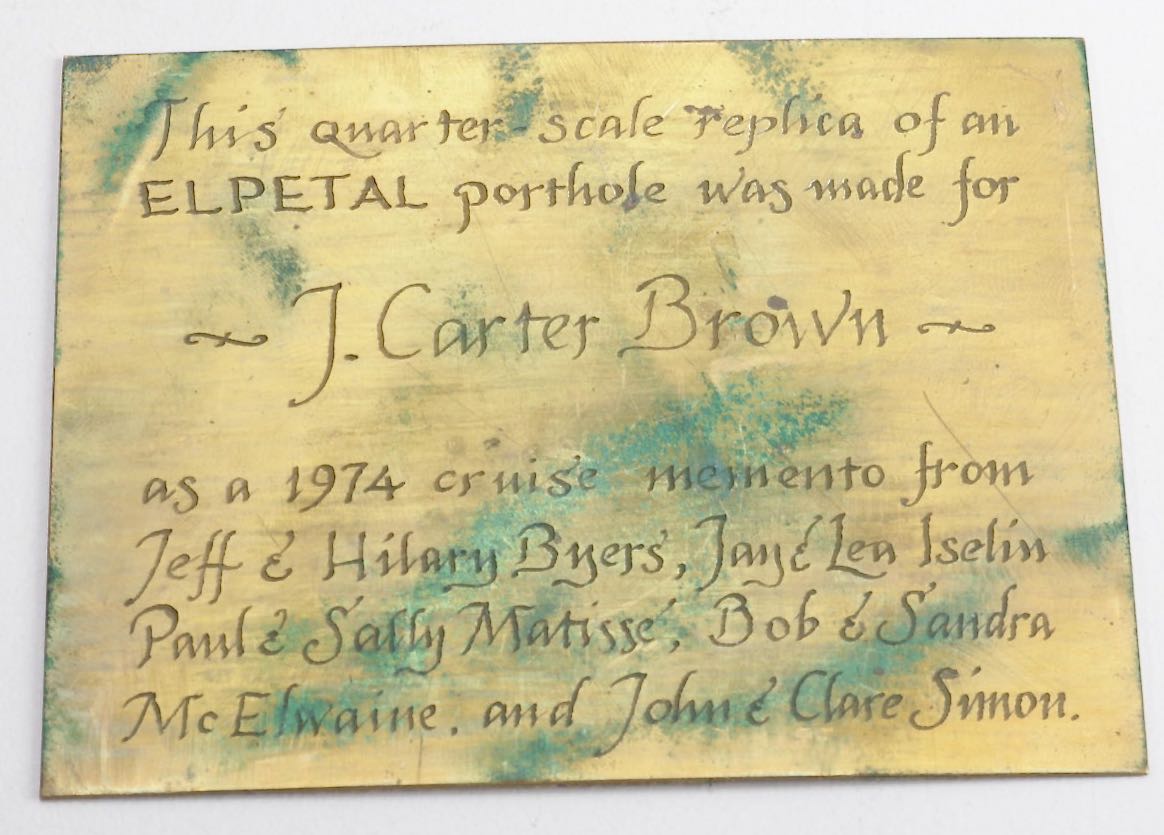 This quarter-scale replica of an
ELPETAL porthole was made for
~ J. Carter Brown ~
as a 1974 cruise memento from
Jeff & Hilary Byers, Jay & Lea Iselin
Paul & Sally Matisse, Bob & Sandra
McElwaine, and John & Clare Simon.